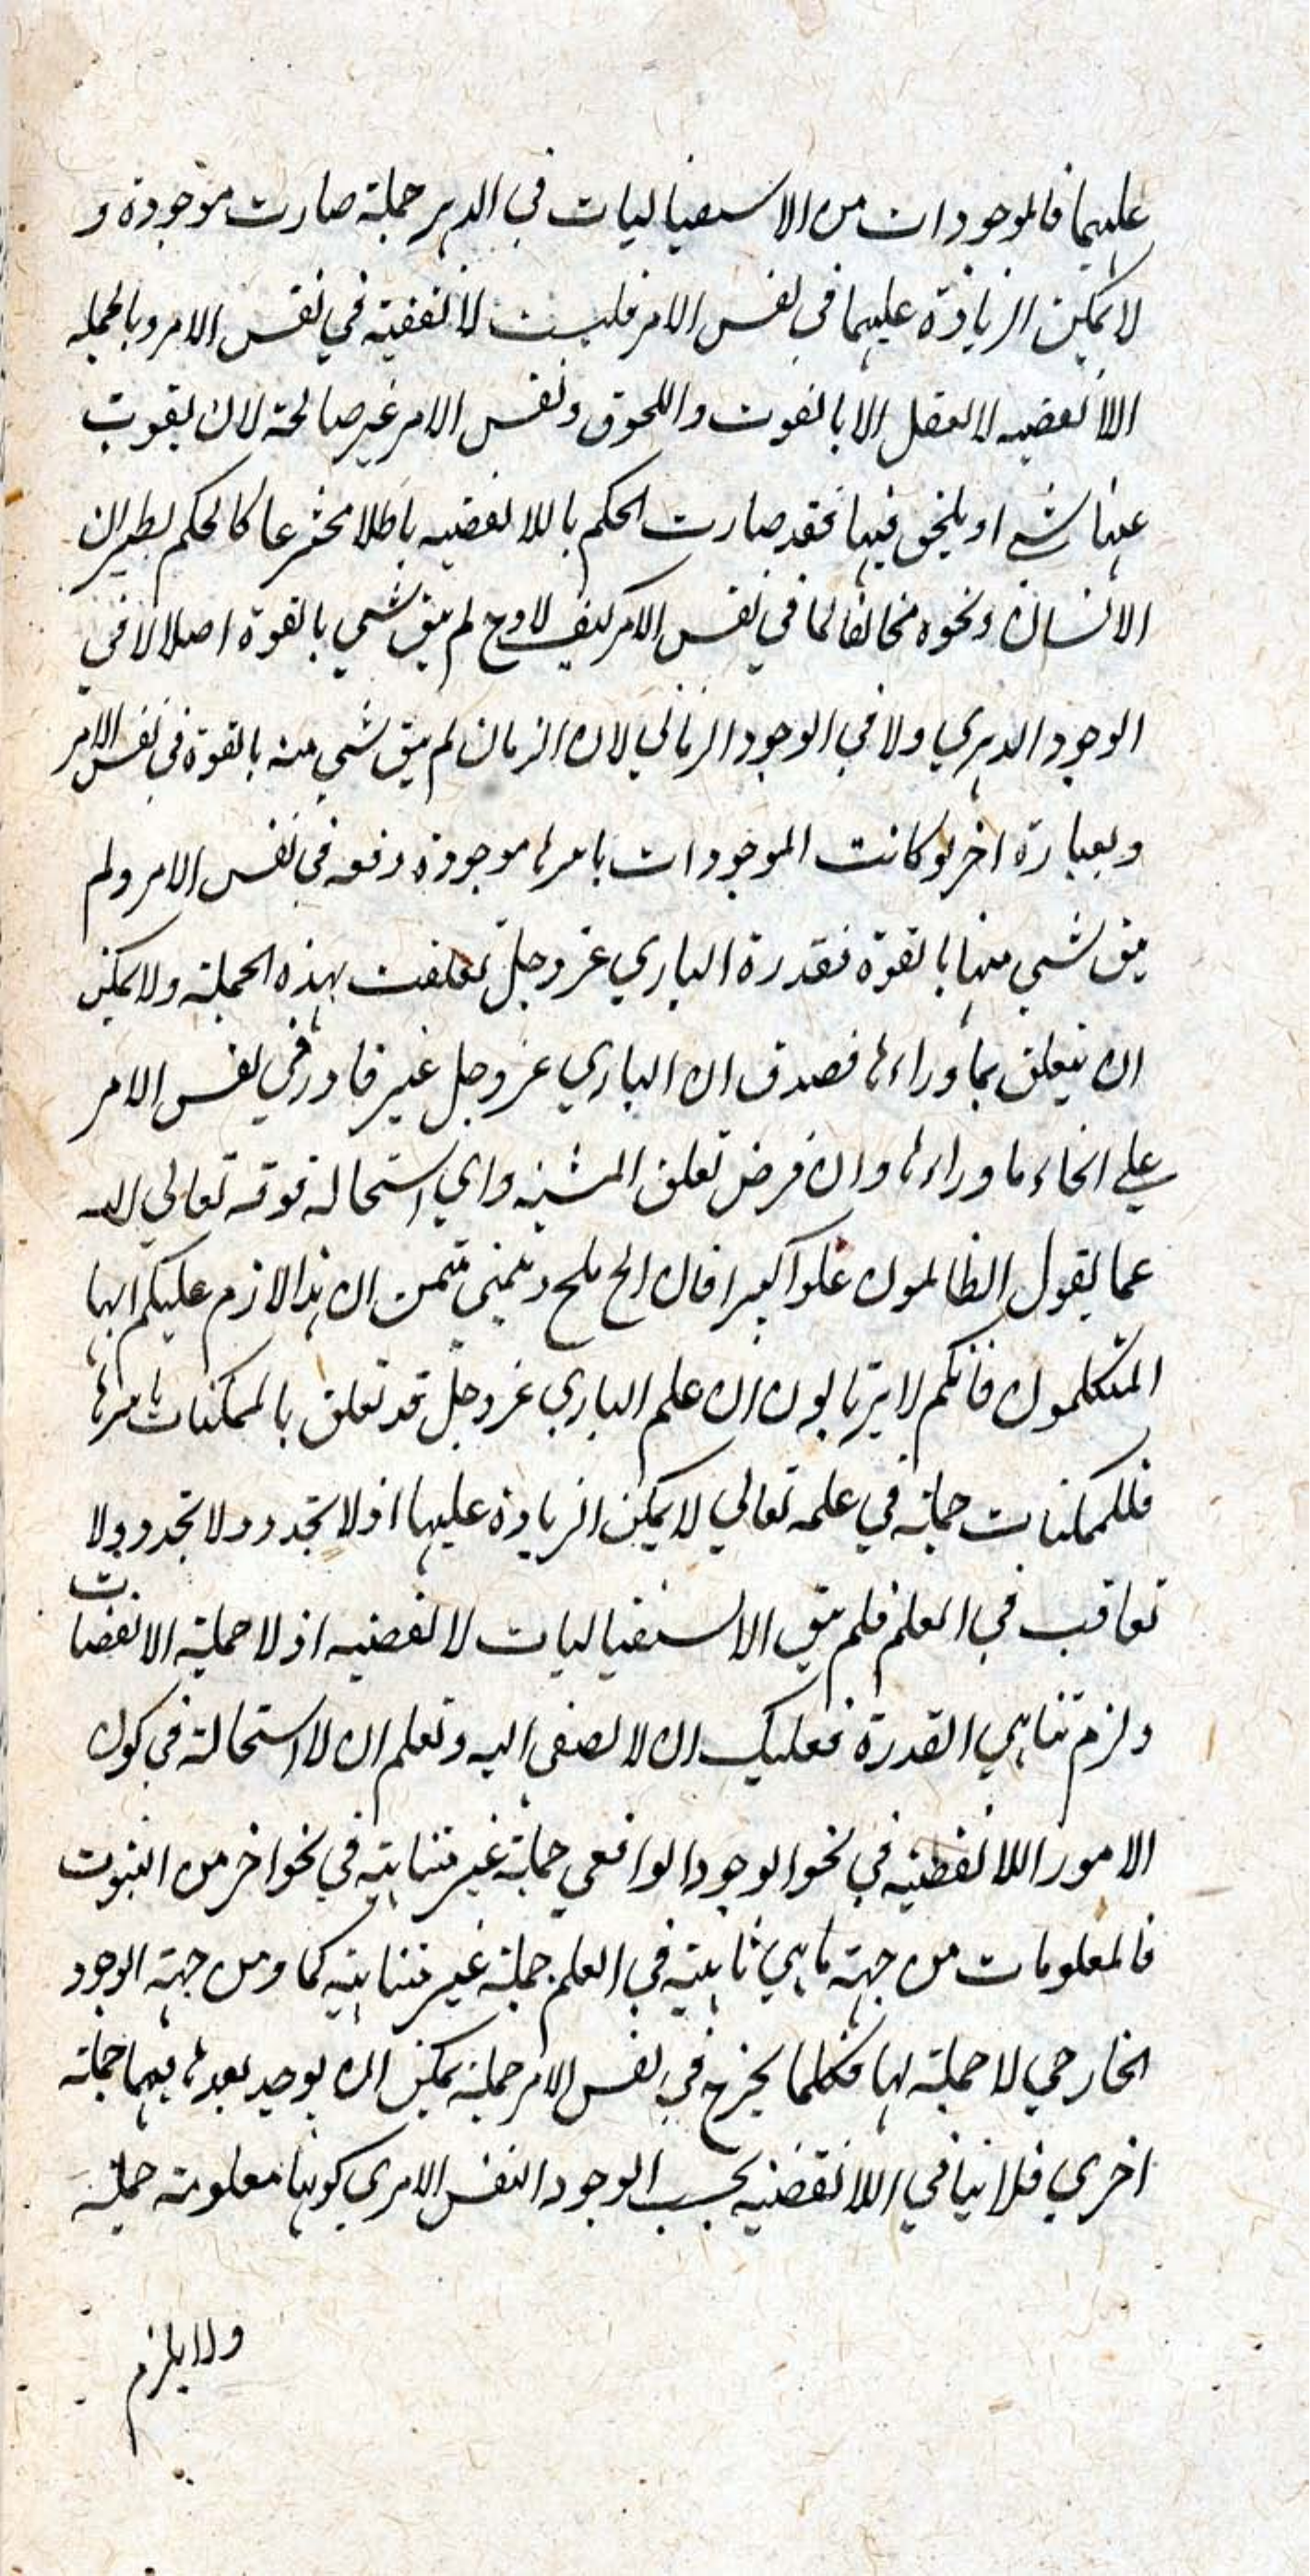 عليها فالموجودات من الاستقباليات في الدهر جملة صارت موجودة و
لا يمكن الزيادة عليها في نفس الامر فليست لا تقفية في نفس الامر وبالجملة
اللا تقفيه لا تعقل الا بالفوت واللحوق ونفس الامر غير صالحة لان يفوت
عنها شي او يلحق فيها فقد صارت الحكم باللا تقفيه باطلا مخترعا كالحكم بطيران
الانسان ونحوه مخالفا لما في نفس الامر كيف لا وح لم يبق شي بالقوة اصلا لا في
الوجود الدهري ولا في الوجود الزماني لان الزمان لم يبق شي منه بالقوة في نفس الامر
وبعبارة اخر لو كانت الموجودات باسرها موجودة دفعه في نفس الامر ولم
يبق شي منها بالقوة فقدرة الباري عز وجل تعلقت بهذه الجملة ولا يمكن
ان يتعلق بما وراءها فصدق ان الباري عز وجل غير قادر في نفس الامر
علي انحاء ما وراءها وان فرض تعلق المشيه واي استحالة فوقه تعالي الله
عما يقول الظالمون علوا كبيرا فان الح ملح وتمني متمن ان هذا لازم عليكم ايها
المتكلمون فانكم لا ترتابون ان علم الباري عز وجل قد تعلق بالممكنات باسرها
فللممكنات جملة في علمه تعالي لا يمكن الزيادة عليها اذ لا تجدد ولا تجدد ولا
تعاقب في العلم فلم يبق الاستقباليات لا تقفيه اذ لا جملة لالا تقفيات
ولزم تناهي القدرة فعليك ان لا تصغي اليه وتعلم ان لا استحالة في كون
الامور اللا تقفيه في نحو الوجود الواقعي جملة غير متناهية في نحو اخر من الثبوت
فالمعلومات من جهة ما هي ثابتة في العلم جملة غير متناهية كما ومن جهة الوجود
الخارجي لا جملة لها فكلما يخرج في نفس الامر جملة يمكن ان يوجد بعدها جملة
اخري فلا ينافي اللا تقفيه بحسب الوجود النفس الامري كونها معلومة جملة
ولا يلزم